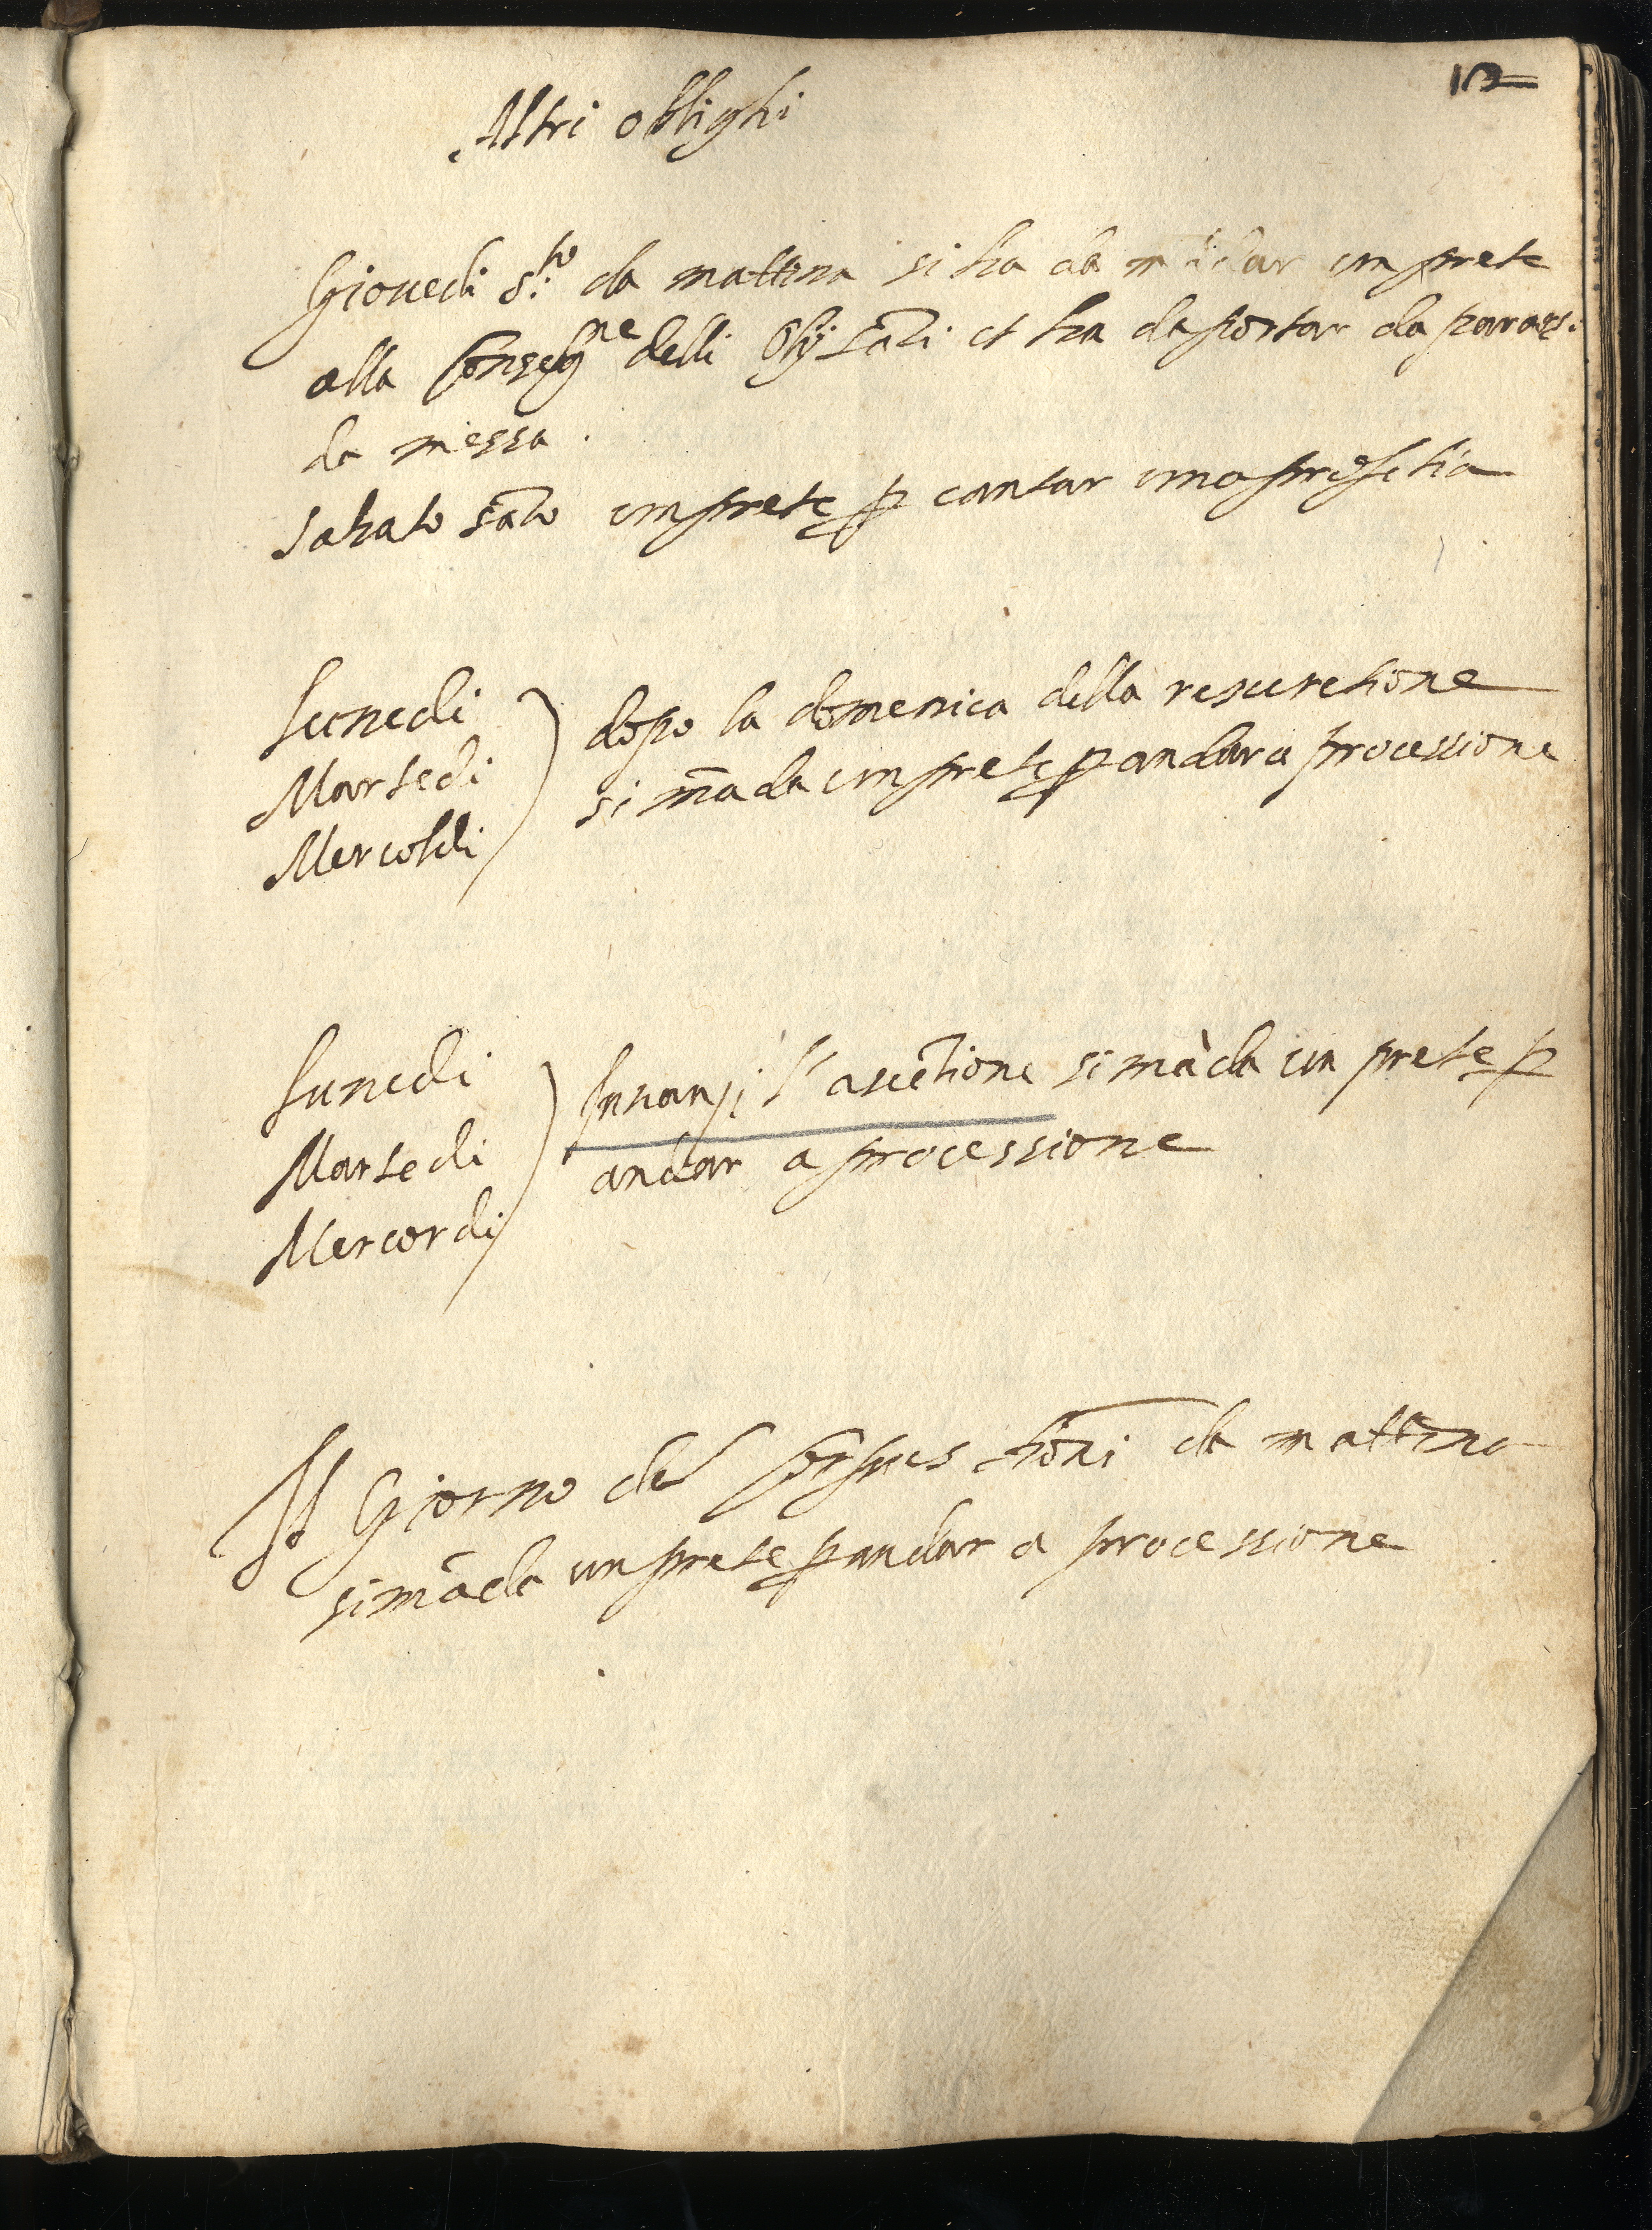 12
Altri oblighi
Giouedi S.to da mattina si ha da mãdar un prete
alla Consegne delli Olij santi et ha da portar da pararsi
da messa.
Sabato sãto un prete p cantar una profetia
Lunedi
Martedi
Mercoldi
dopo la domenica della resuretione
si mãda un prete p andar a processione
Lunedi
Martedi
Mercordi
Inanzi l'ascẽtione si mãda un prete p
andar a processione
Il Giorno del Corpus dõni da mattina
si mãda un prete p andar a processione